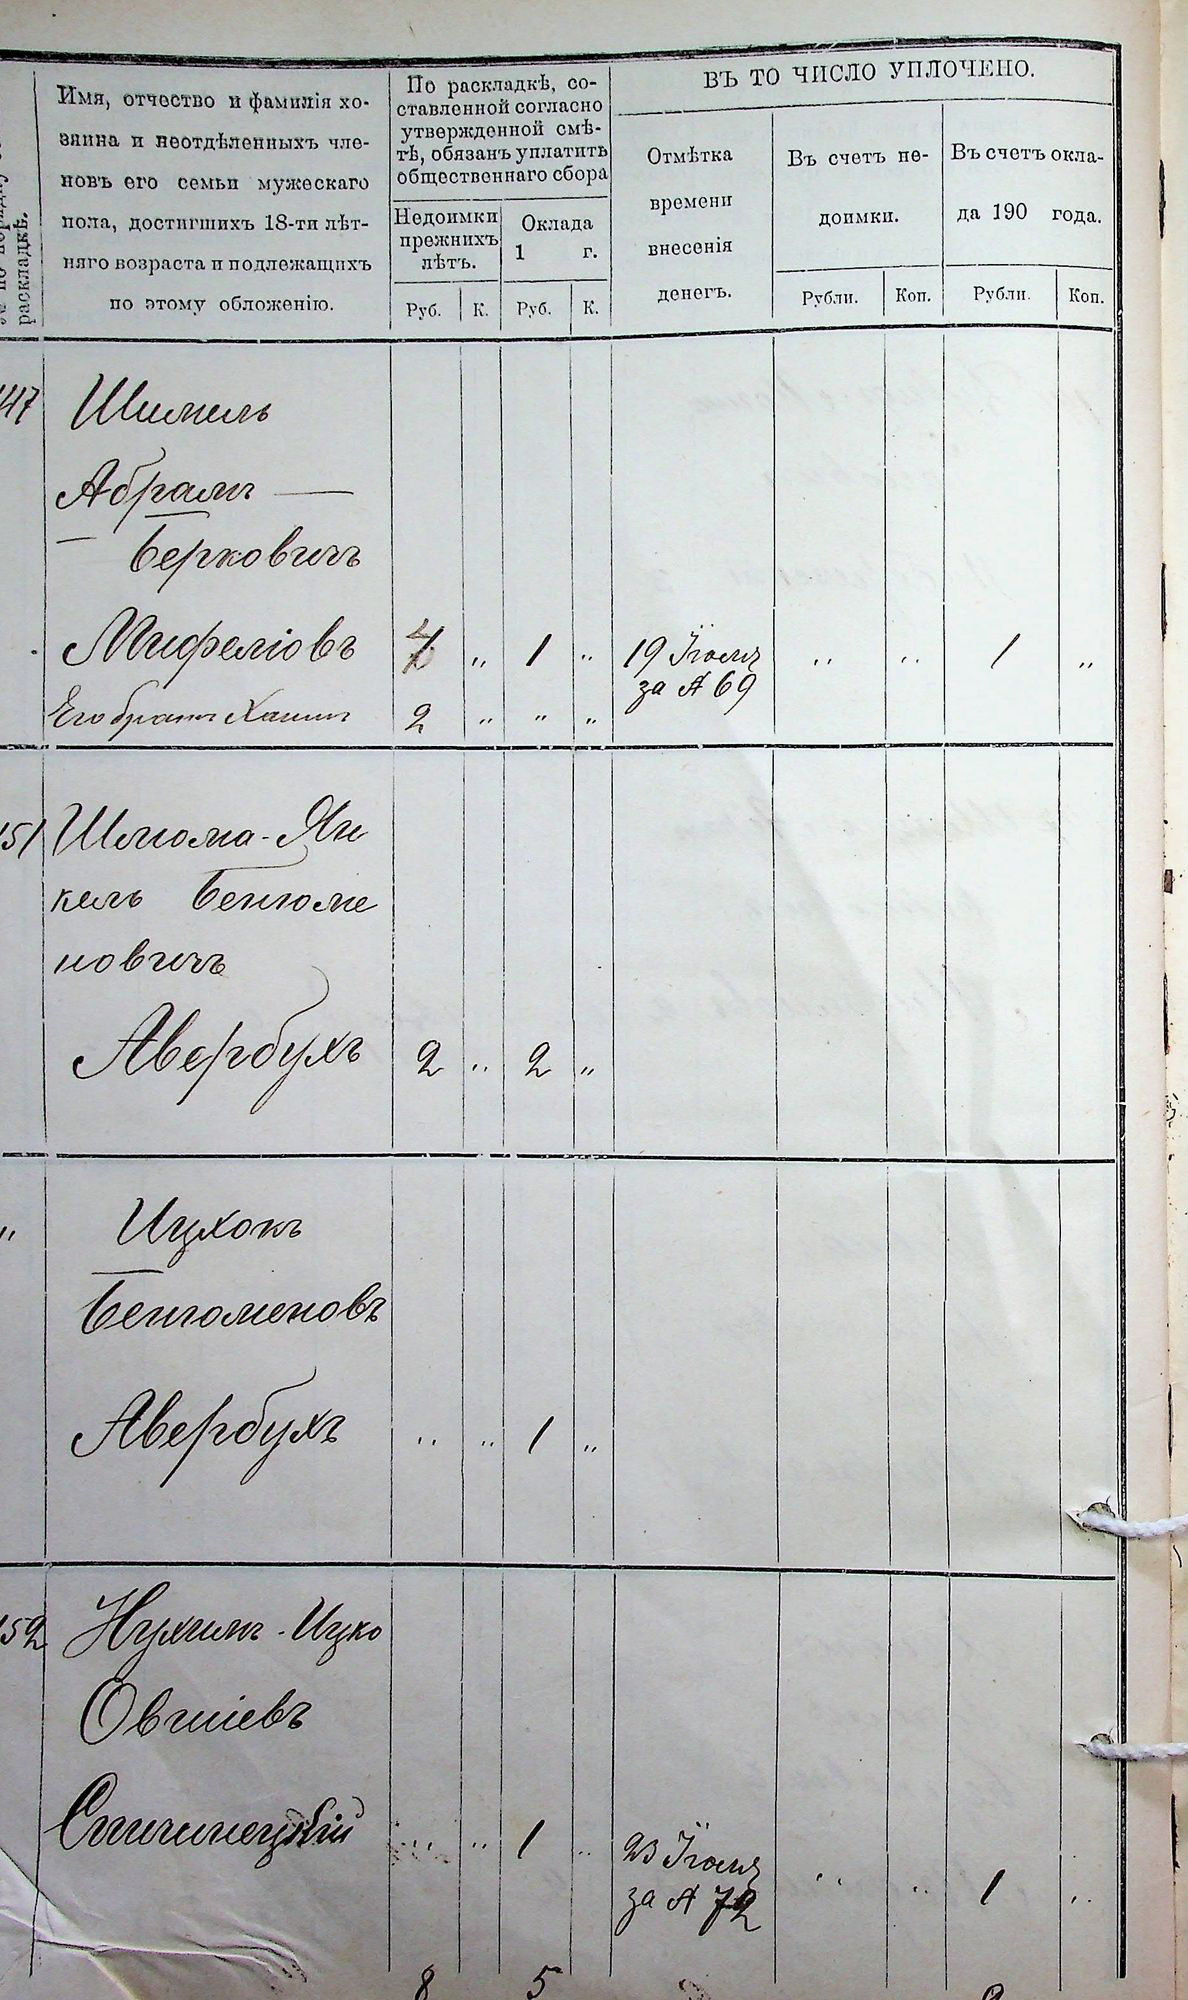 раскладкѣ.
Имя, отчество и фамилія хо-
зяина и неотдѣленныхъ чле-
новъ его семьи мужескаго
пола, достигшихъ 18-ти лѣт-
няго возраста и подлежащихъ
по этому обложенію.
По раскладкѣ, со-
ставленной согласно
утвержденной смѣ-
тѣ, обязанъ уплатить
общественнаго сбора
Недоимки
прежнихъ
лѣтъ.
Оклада
1 г.
Руб. К. Руб. К.
ВЪ ТО ЧИСЛО УПЛОЧЕНО.
Отмѣтка
времени
внесенія
денегъ.
Въ счетъ не-
доимки.
Въ счетъ окла-
да 190 года.
Рубли. Коп. Рубли. Коп.
147 Шимель
Абрамъ —
— Берковичъ
Мифеліовъ 4 „ 1 „ 19 Іюля „ „ 1 „
за № 69
Его братъ Хаимъ 2 „ „ „
151 Шлиома-Ян
кель Бенюме
новичъ
Авербухъ 2 „ 2 „
„ Ицхокъ
Бенюменовъ
Авербухъ „ „ 1 „
152 Нухимъ-Ицко
Овшіевъ
Спичинецкій „ „ 1 „ 23 Іюля „ „ 1 „
за № 72
8 5